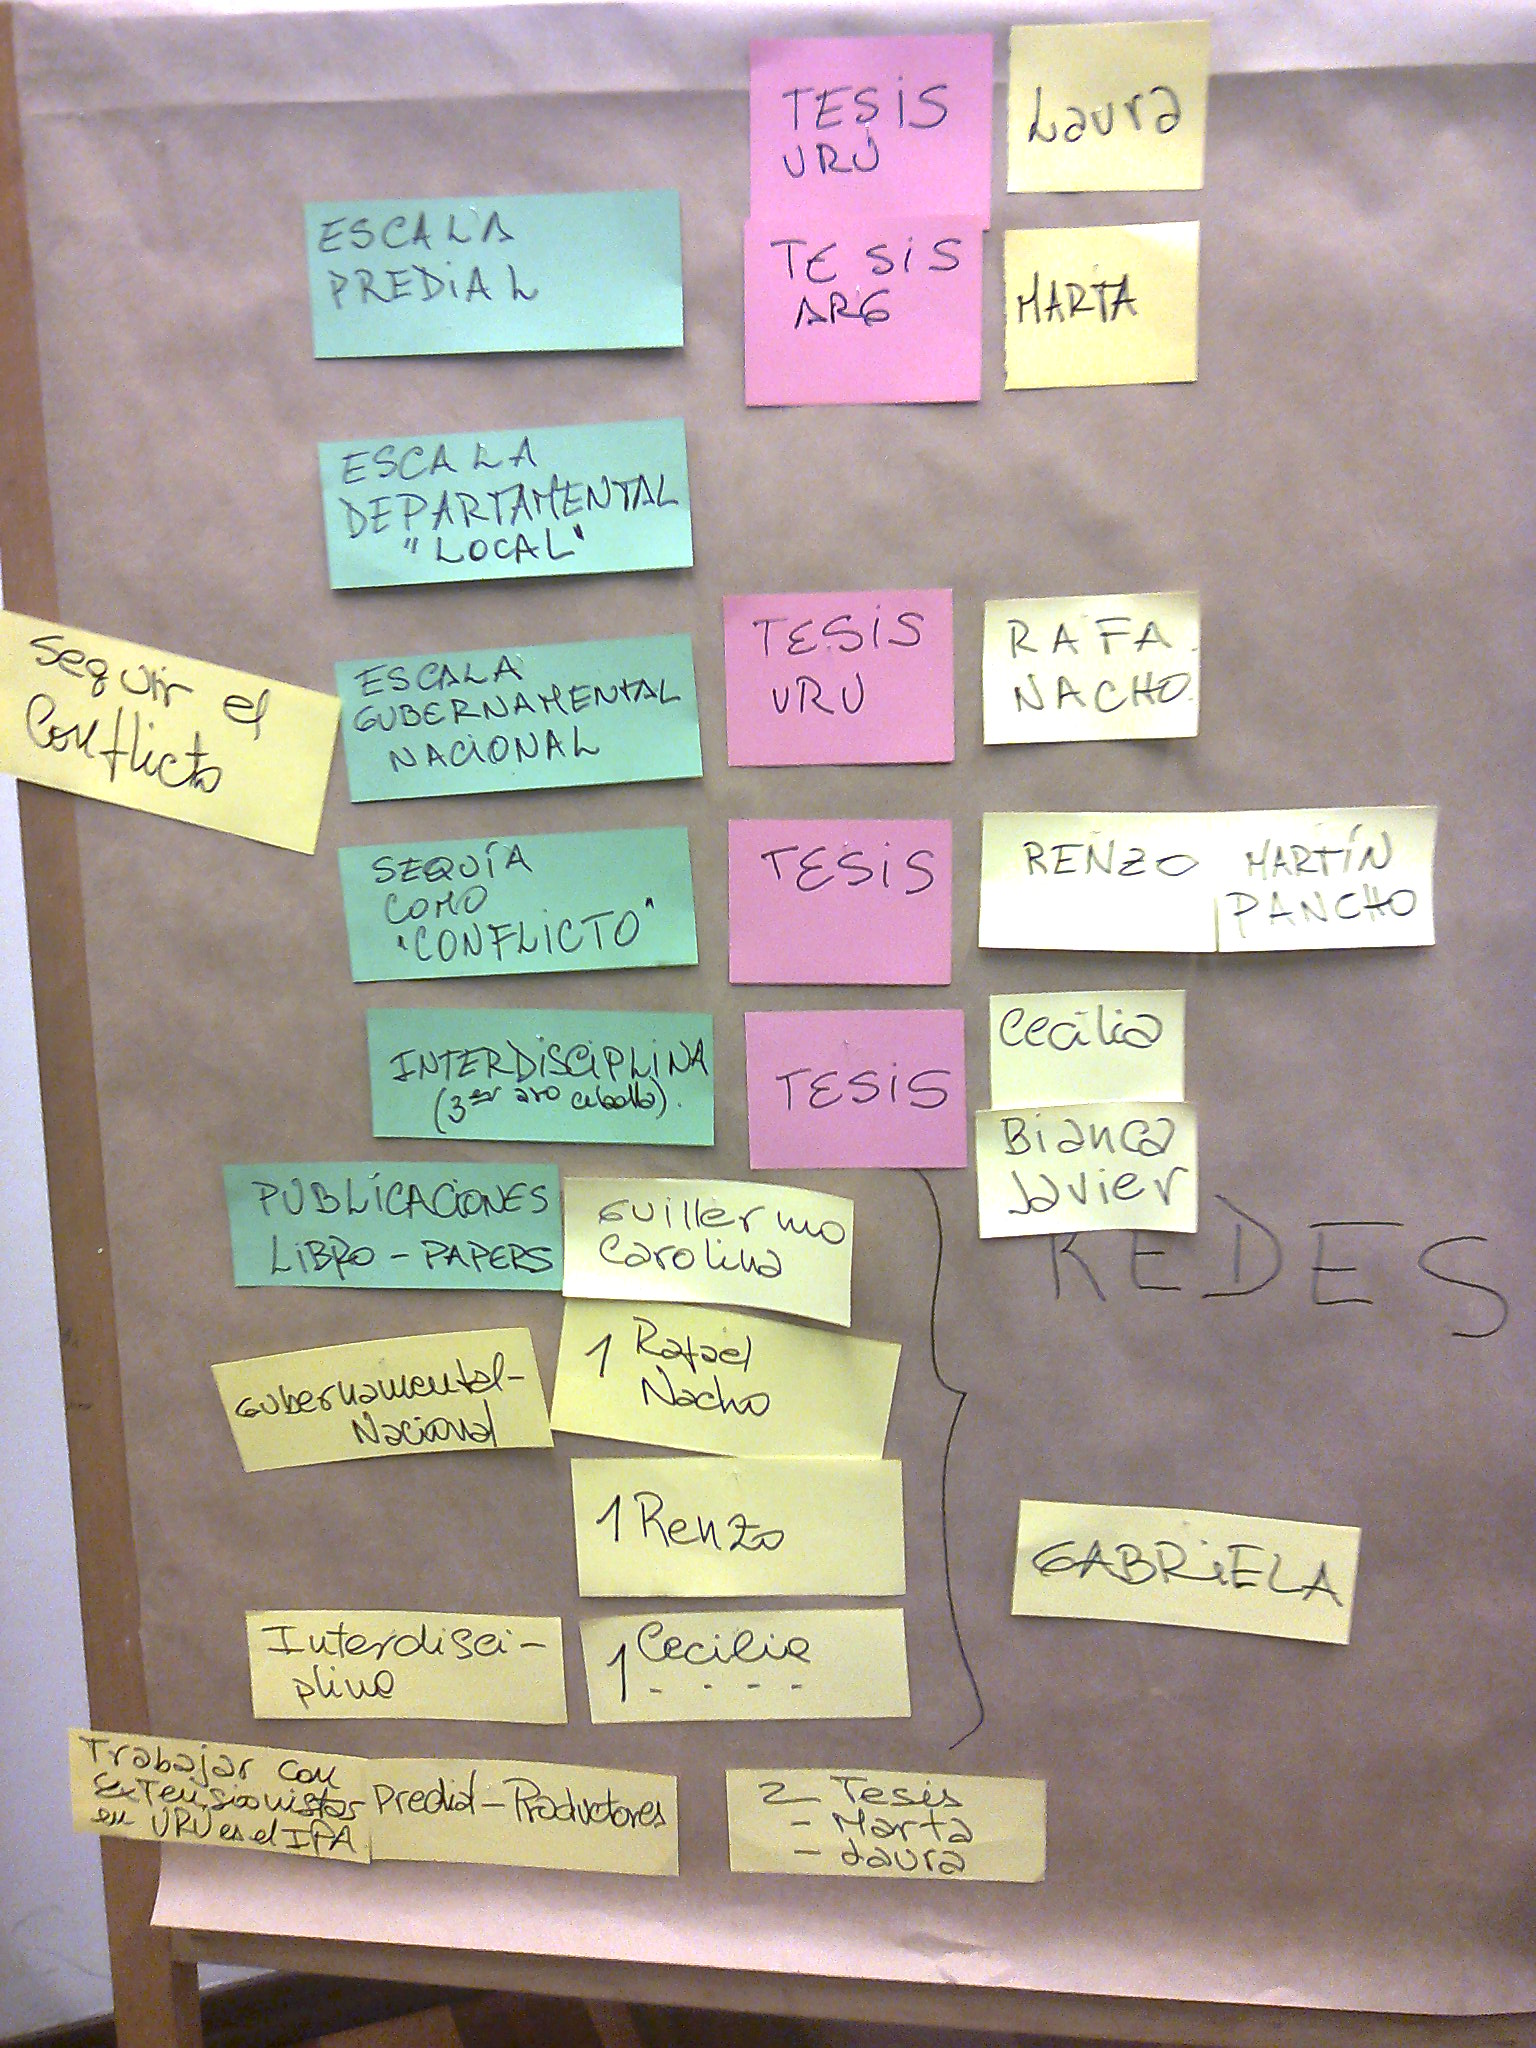 TESIS
URU
Laura
ESCALA
PREDIAL
TESIS
ARG
MARTA
ESCALA
DEPARTAMENTAL
"LOCAL"
Seguir el
Conflicto
ESCALA
GUBERNAMENTAL
NACIONAL
TESIS
URU
RAFA
NACHO
SEQUÍA
COMO
"CONFLICTO"
TESIS
RENZO
MARTÍN
PANCHO
INTERDISCIPLINA
(3er aro cebolla).
TESIS
Cecilia
Bianca
Javier
PUBLICACIONES
LIBRO - PAPERS
Guillermo
Carolina
REDES
Gubernamental-
Nacional
1 Rafael
Nacho
1 Renzo
GABRIELA
Interdisci-
plina
1 Cecilia
- - - -
Trabajar con
extensionistas
en URU es el IPA
Predial - Productores
2 Tesis
- Marta
- Laura